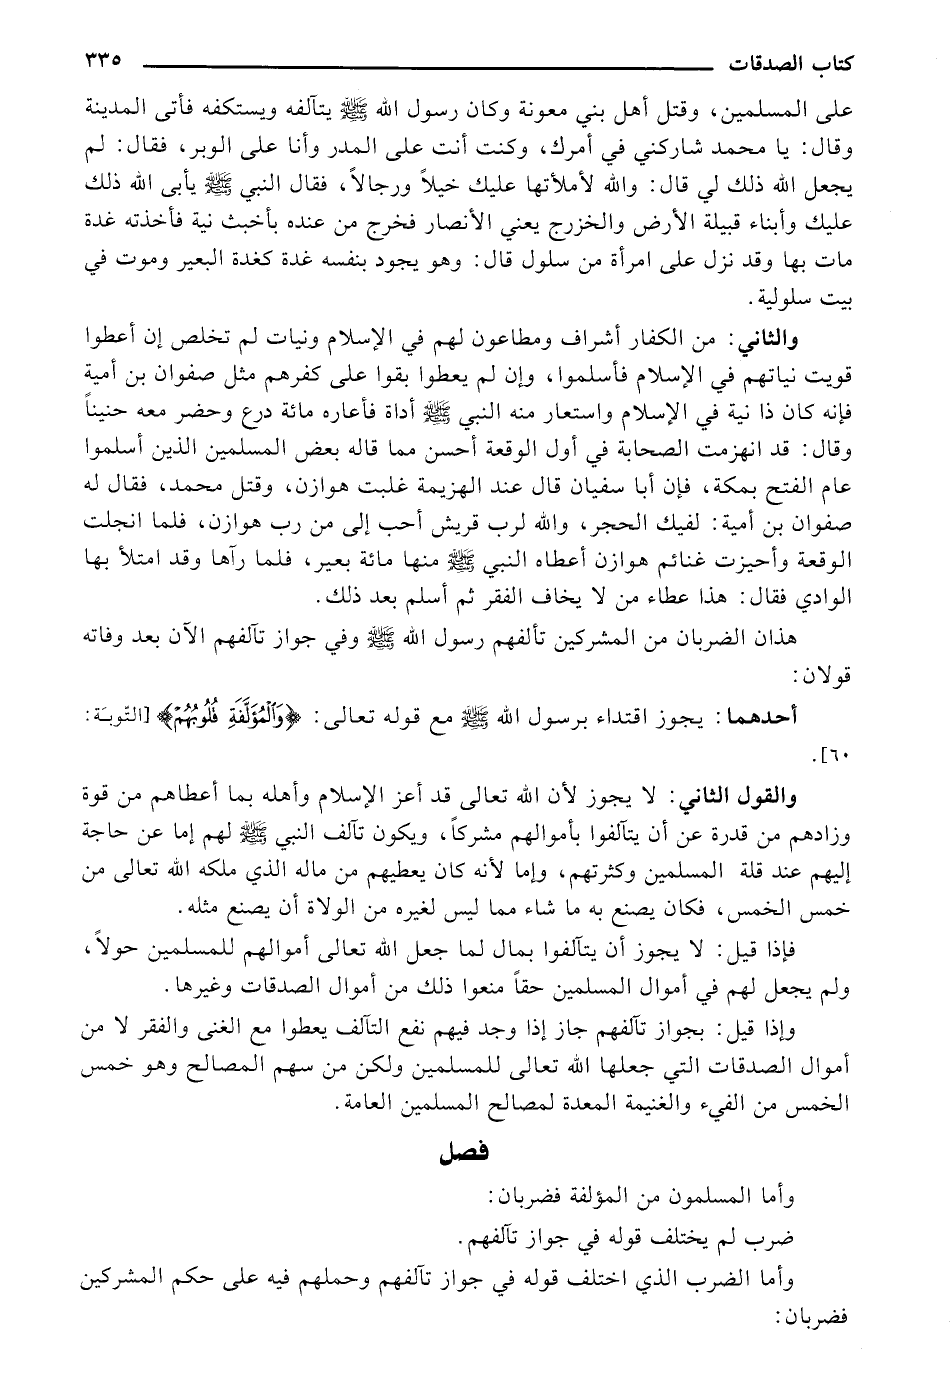 كتاب الصدقات ٣٣٥
على المسلمين، وقتل أهل بني معونة وكان رسول الله ﷺ يتآلفه ويستكفه فأتى المدينة
وقال: يا محمد شاركني في أمرك، وكنت أنت على المدر وأنا على الوبر، فقال: لم
يجعل الله ذلك لي قال: والله لأملأنها عليك خيلاً ورجالاً، فقال النبي ﷺ يأبى الله ذلك
عليك وأبناء قبيلة الأرض والخزرج يعني الأنصار فخرج من عنده بأخبث نية فأخذته غدة
مات بها وقد نزل على امرأة من سلول قال: وهو يجود بنفسه غدة كغدة البعير وموت في
بيت سلولية.
والثاني: من الكفار أشراف ومطاعون لهم في الإسلام ونيات لم تخلص إن أعطوا
قويت نياتهم في الإسلام فأسلموا، وإن لم يعطوا بقوا على كفرهم مثل صفوان بن أمية
فإنه كان ذا نية في الإسلام واستعار منه النبي ﷺ أداة فأعاره مائة درع وحضر معه حنيناً
وقال: قد انهزمت الصحابة في أول الوقعة أحسن مما قاله بعض المسلمين الذين أسلموا
عام الفتح بمكة، فإن أبا سفيان قال عند الهزيمة غلبت هوازن، وقتل محمد، فقال له
صفوان بن أمية: لفيك الحجر، والله لرب قريش أحب إلى من رب هوازن، فلما انجلت
الوقعة وأحيزت غنائم هوازن أعطاه النبي ﷺ منها مائة بعير، فلما رآها وقد امتلأ بها
الوادي فقال: هذا عطاء من لا يخاف الفقر ثم أسلم بعد ذلك.
هذان الضربان من المشركين تألفهم رسول الله ﷺ وفي جواز تآلفهم الآن بعد وفاته
قولان:
أحدهما: يجوز اقتداء برسول الله ﷺ مع قوله تعالى: ﴿وَالْمُؤَلَّفَةِ قُلُوبُهُمْ﴾ [التّوبَة:
٦٠].
والقول الثاني: لا يجوز لأن الله تعالى قد أعز الإسلام وأهله بما أعطاهم من قوة
وزادهم من قدرة عن أن يتآلفوا بأموالهم مشركاً، ويكون تآلف النبي ﷺ لهم إما عن حاجة
إليهم عند قلة المسلمين وكثرتهم، وإما لأنه كان يعطيهم من ماله الذي ملكه الله تعالى من
خمس الخمس، فكان يصنع به ما شاء مما ليس لغيره من الولاة أن يصنع مثله.
فإذا قيل: لا يجوز أن يتآلفوا بمال لما جعل الله تعالى أموالهم للمسلمين حولاً،
ولم يجعل لهم في أموال المسلمين حقاً منعوا ذلك من أموال الصدقات وغيرها.
وإذا قيل: بجواز تآلفهم جاز إذا وجد فيهم نفع التآلف يعطوا مع الغنى والفقر لا من
أموال الصدقات التي جعلها الله تعالى للمسلمين ولكن من سهم المصالح وهو خمس
الخمس من الفيء والغنيمة المعدة لمصالح المسلمين العامة.
فصل
وأما المسلمون من المؤلفة فضربان:
ضرب لم يختلف قوله في جواز تآلفهم.
وأما الضرب الذي اختلف قوله في جواز تآلفهم وحملهم فيه على حكم المشركين
فضربان: